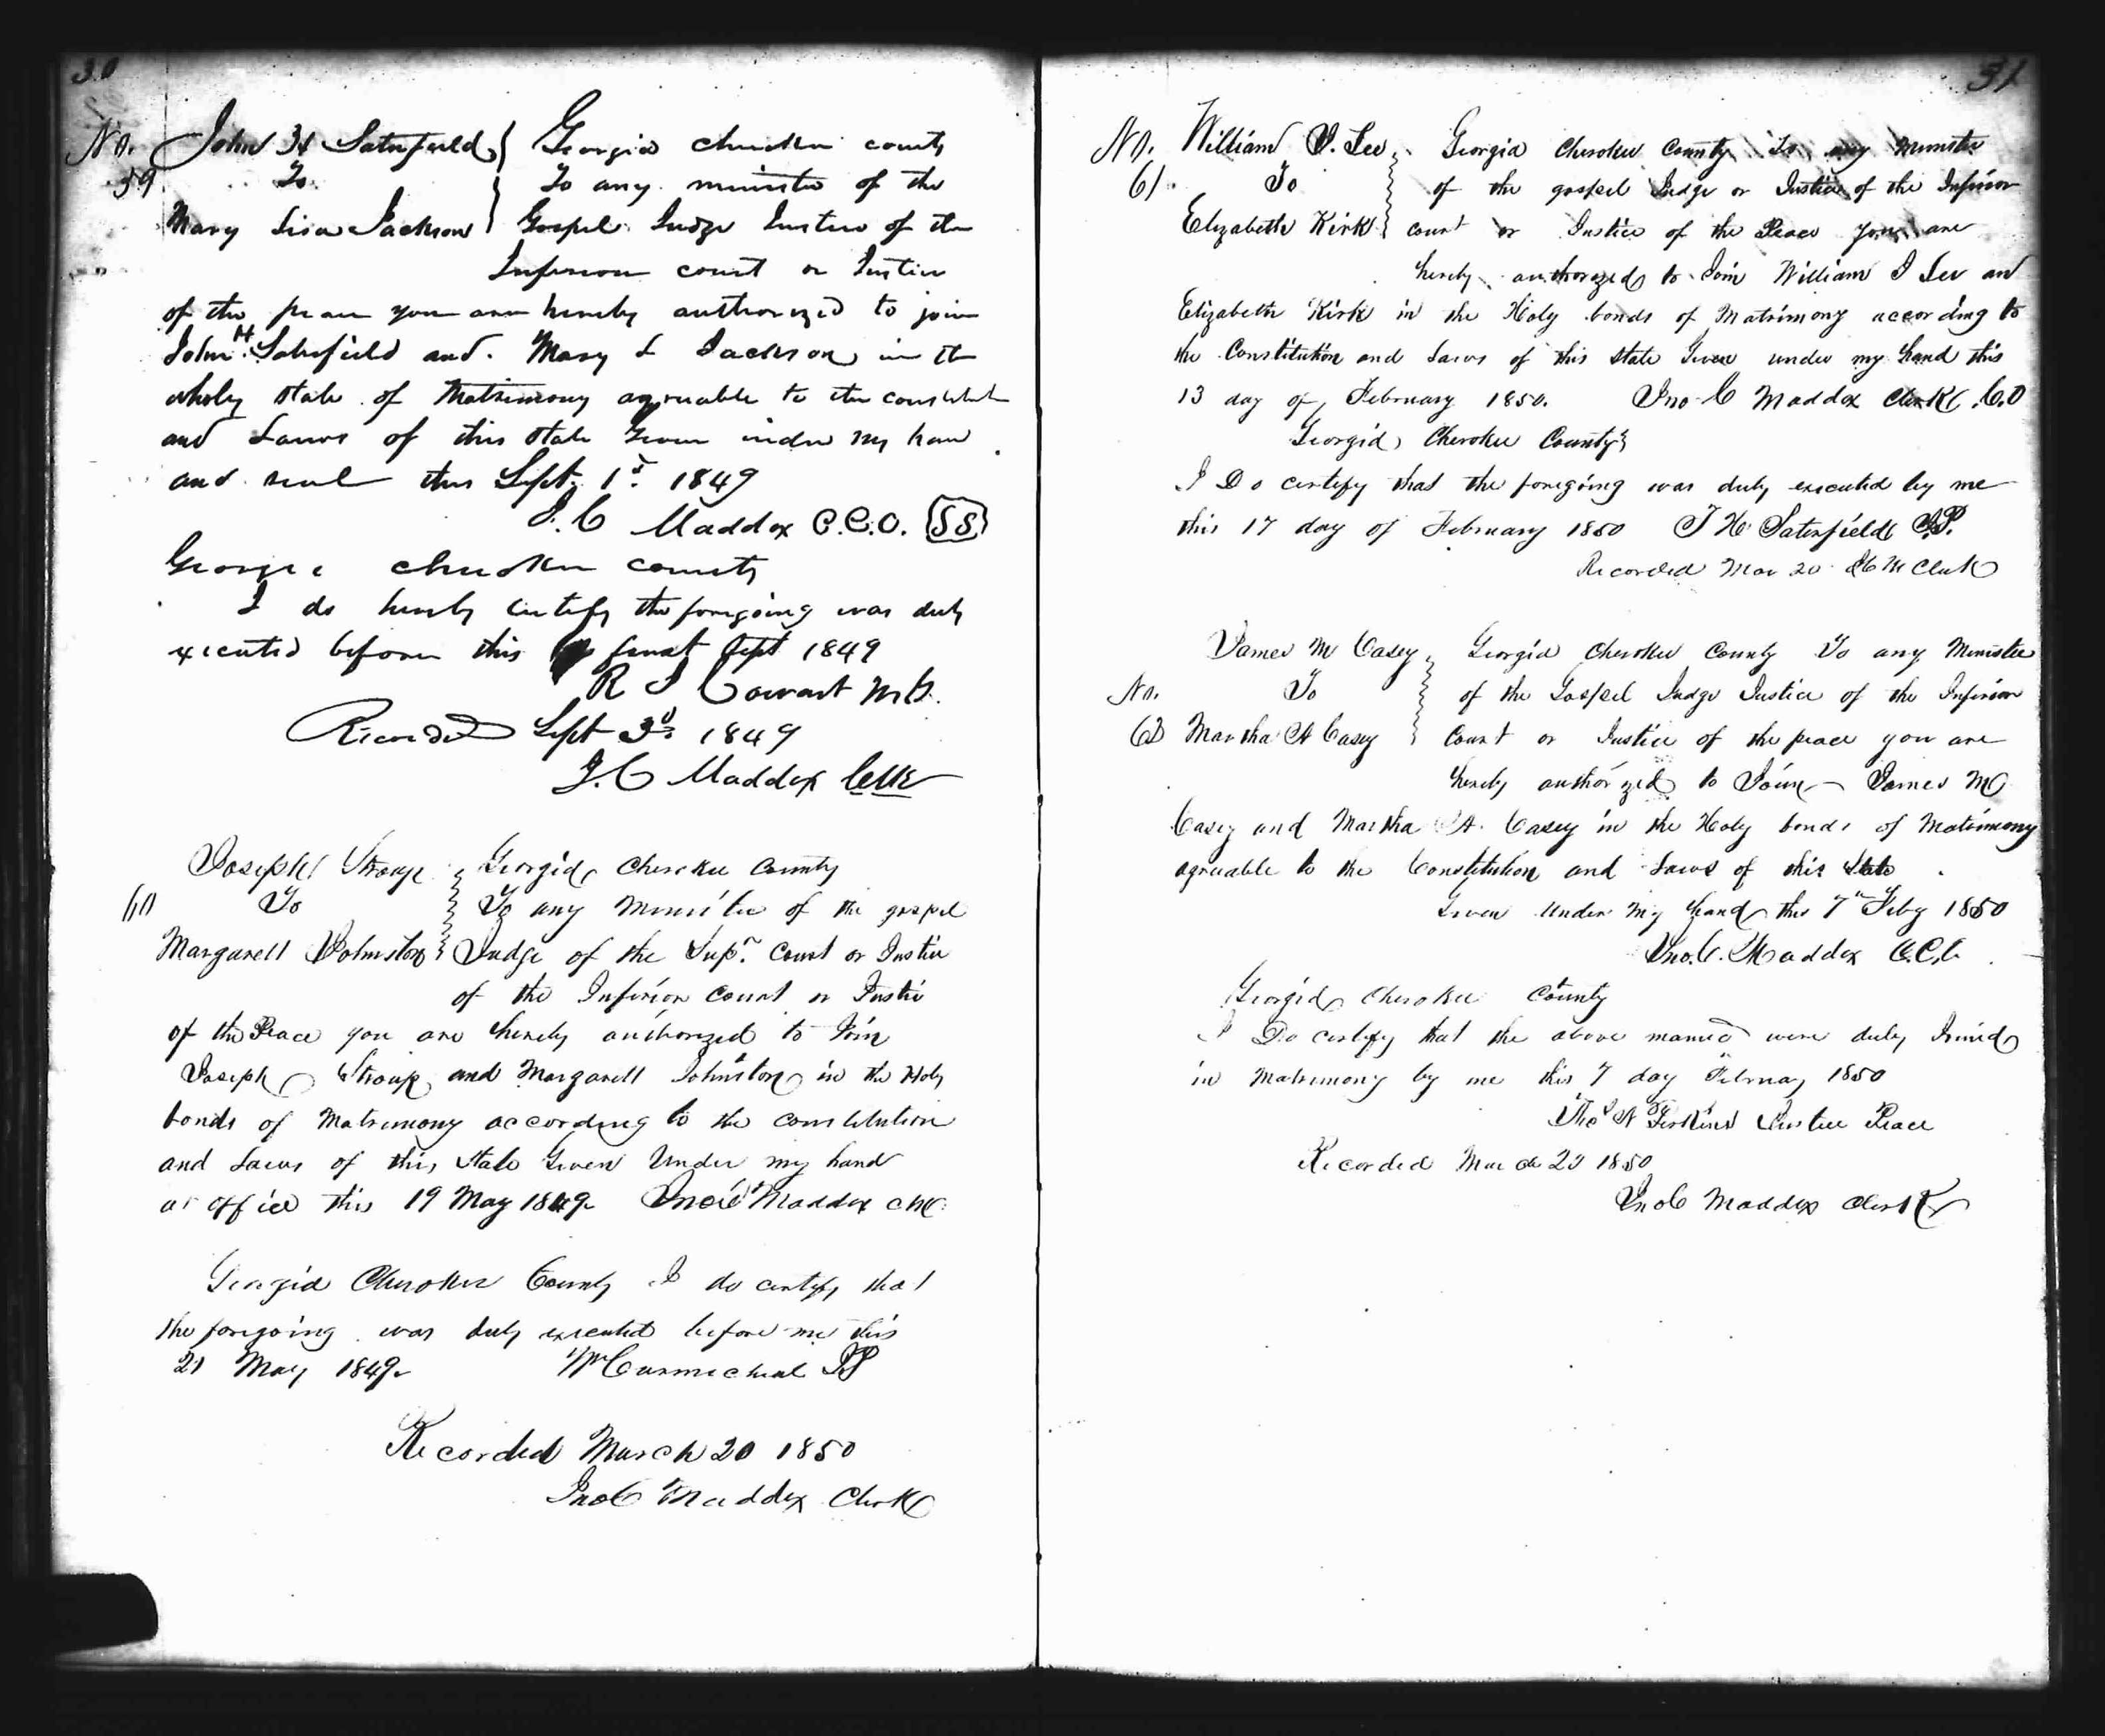 30
No. John H Saterfield } Georgia cherokee county
59 To } To any minister of the
Mary Liza Jackson } Gospel Judge Justice of the
Inferior court or Justice
of the peace you are hereby authorized to join
John H. Saterfield and Mary L Jackson in the
wholy state of Matrimony agreeable to the
and Laws of this state Given under my han
and seal this Sept. 1st 1849
J. C Maddox C.C.O. {SS}
Georgia cherokee county
I do hereby certify the foregoing was duly
executed before this first Sept 1849
R J Cowart M.G.
Recorded Sept 3d 1849
J. C Maddox Clk
Joseph Stroup } Georgia Cherokee County
60 To } To any Minister of the gospel
Margarett Johnston } Judge of the Supr. Court or Justice
of the Inferior Court or Justice
of the Peace you are hereby authorized to Join
Joseph Stroup and Margarett Johnston in the Holy
bonds of Matrimony according to the constitution
and Laws of this State Given Under my hand
at office this 19 May 1849 Jno C Maddox
Georgia Cherokee County I do certify that
the foregoing was duly executed before me this
21 May 1849 Wm Carmichael JP
Recorded March 20 1850
Jno C Maddox Clerk
31
No. William J. Lee } Georgia Cherokee County To any minister
61. To } of the gospel Judge or Justice of the Inferior
Elizabeth Kirk } court or Justice of the Peace you are
hereby authorized to Join William J Lee and
Elizabeth Kirk in the Holy bonds of Matrimony according to
the Constitution and Laws of this State Given under my hand this
13 day of February 1850. Jno C Maddox Clerk C.O
Georgia Cherokee County}
I Do certify that the foregoing was duly executed by me
this 17 day of February 1850 J H Saterfield J.P.
Recorded Mar 20 Clerk
James M Casey } Georgia Cherokee County To any Minister
No. To } of the Gospel Judge Justice of the Inferior
62 Martha A Casey } Court or Justice of the peace you are
hereby authorized to Join James M
Casey and Martha A. Casey in the Holy bonds of Matrimony
agreeable to the Constitution and Laws of this State
Given Under my hand this 7th Feby 1850
Jno. C. Maddox C.C.O.
Georgia Cherokee County
I Do certify that the above named were duly Joined
in Matrimony by me this 7 day February 1850
Justice Peace
Recorded March 20 1850
Jno C Maddox Clerk